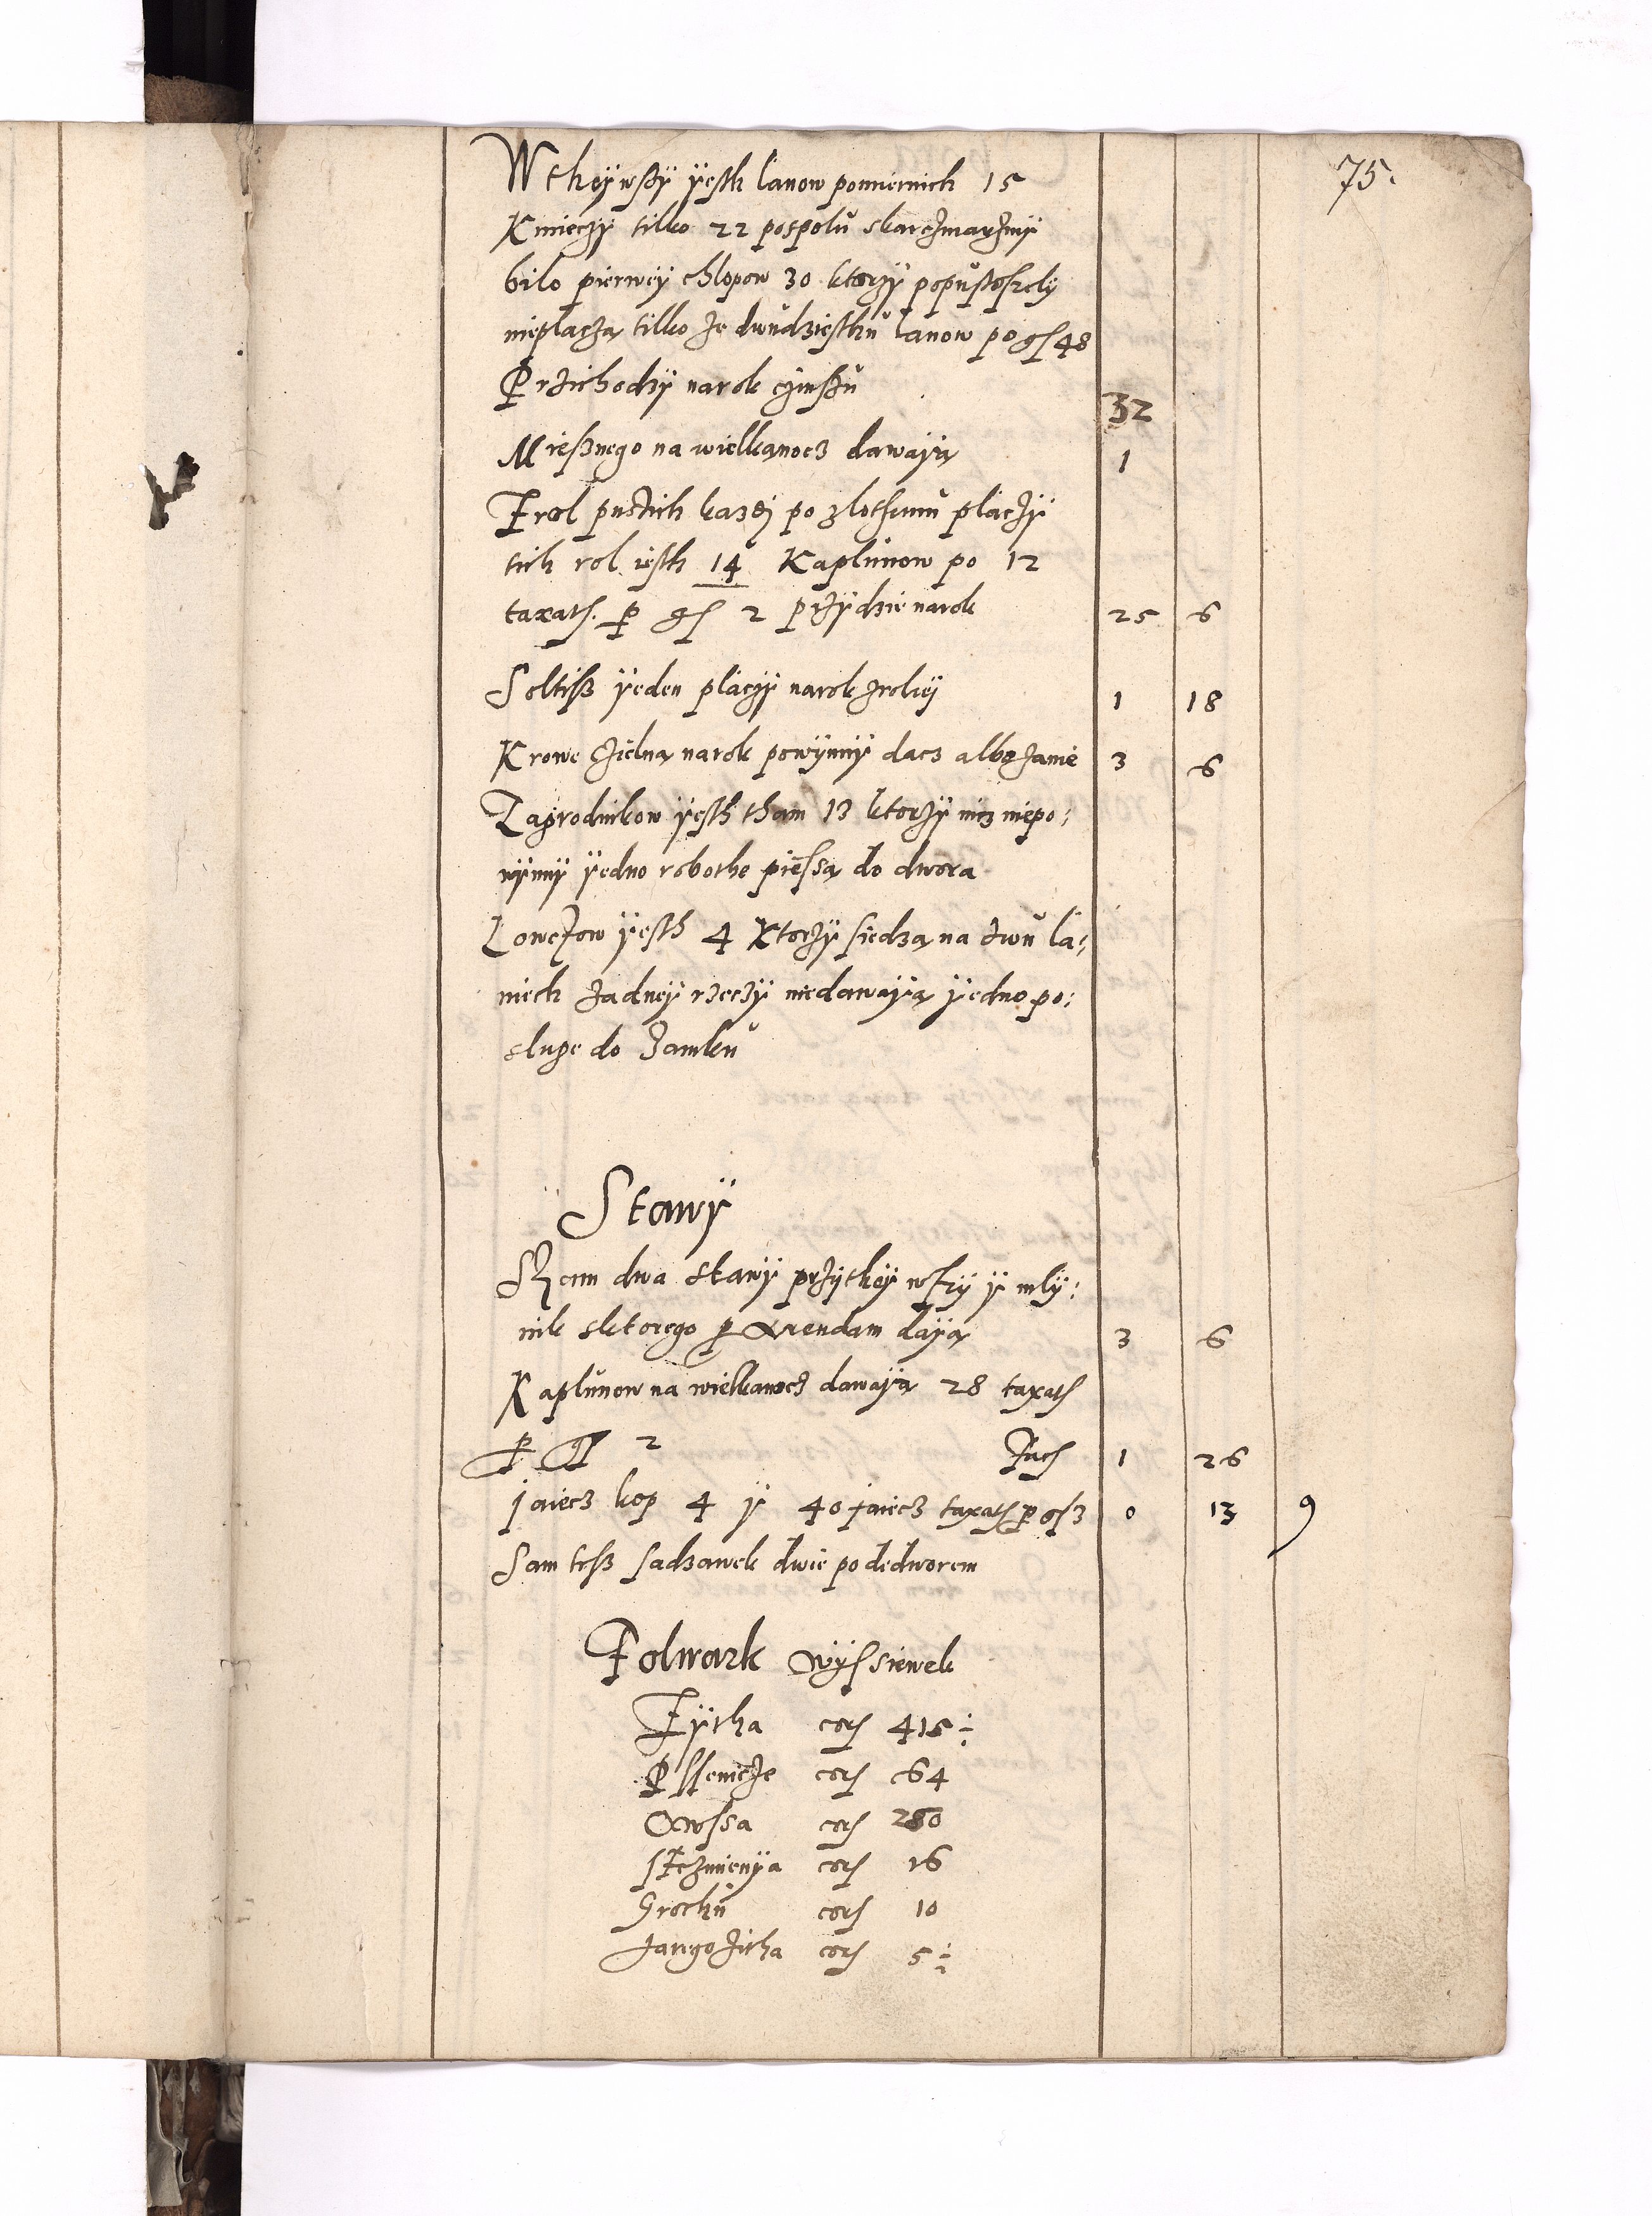 75.
W thej wsÿ ÿesth lanow pomiernich 15
Kmieczÿ tilko 22 pospolu skarczmarzmÿ
bilo pierwej chlopow 30 ktorzÿ popustoszelÿ
nieplacza tilko ze dwudziesthu lanow po gs 48
Przichodzÿ narok czinszu 32
Miesznego na wielkanocz dawaÿa 1
Z rol pustich kazdÿ po zlothemu placzÿ
tich rol iesth 14 Kaplunow po 12
taxats. p gs 2 przÿdzie narok 25 6
Soltisz ÿeden placzÿ narok zroley 1 18
Krowe czielna narok powÿnnÿ dacz albo zanie 3 6
Zagrodnikow ÿesth tham 13 ktorzÿ nicz niepo:
wÿnnÿ ÿedno robothe piessa do dwora
Lowczow ÿesth 4 Ktorzÿ siedza na dwu la:
niech zadneÿ rzeczÿ niedawaÿa ÿedno po:
sluge do Zamku
Stawÿ
Sam dwa stawÿ przÿ thej wsÿ ÿ mlÿ:
nik sktorego p Arendam daÿa 3 6
Kaplunow na wielkanocz dawaÿa 28 taxats
p gs 2 facs 1 26
jaiecz kop 4 ÿ 40 jaiecz taxats p gs 3 0 13 9
Sam tesz sadzawek dwie pode dworem
Folwark wÿssiewek
Zÿtha cors 415 ÷
Pssenicze cors 64
Owssa cors 280
Jeczmienÿa cors 16
Grochu cors 10
Jarego zitha cors 5 ÷